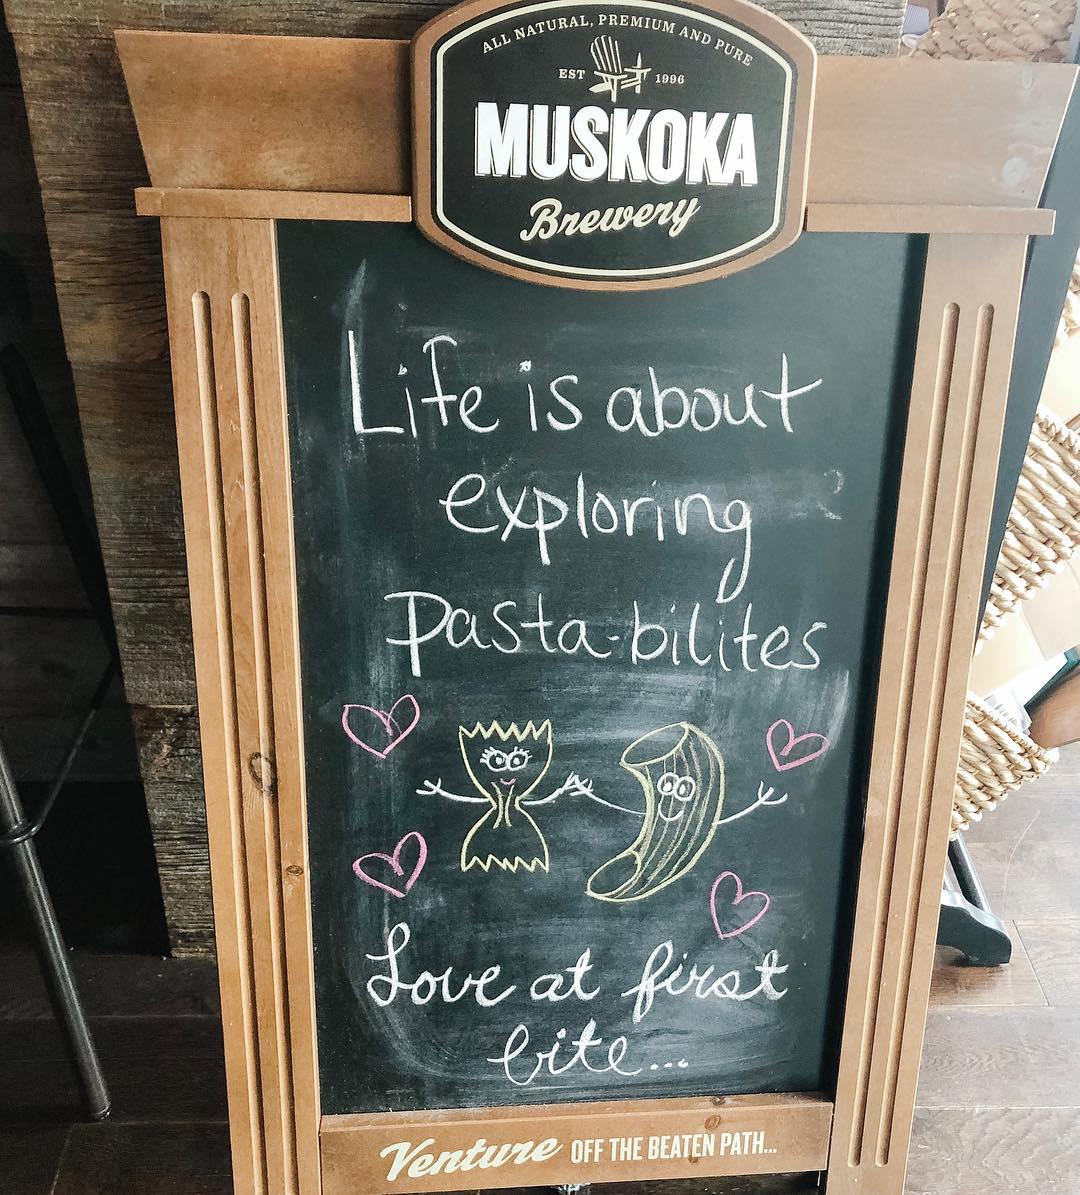 ALL NATURAL, PREMIUM AND PURE
EST 1996
MUSKOKA
Brewery
Life is about
exploring
pasta-bilites
Love at first
bite...
Venture OFF THE BEATEN PATH...